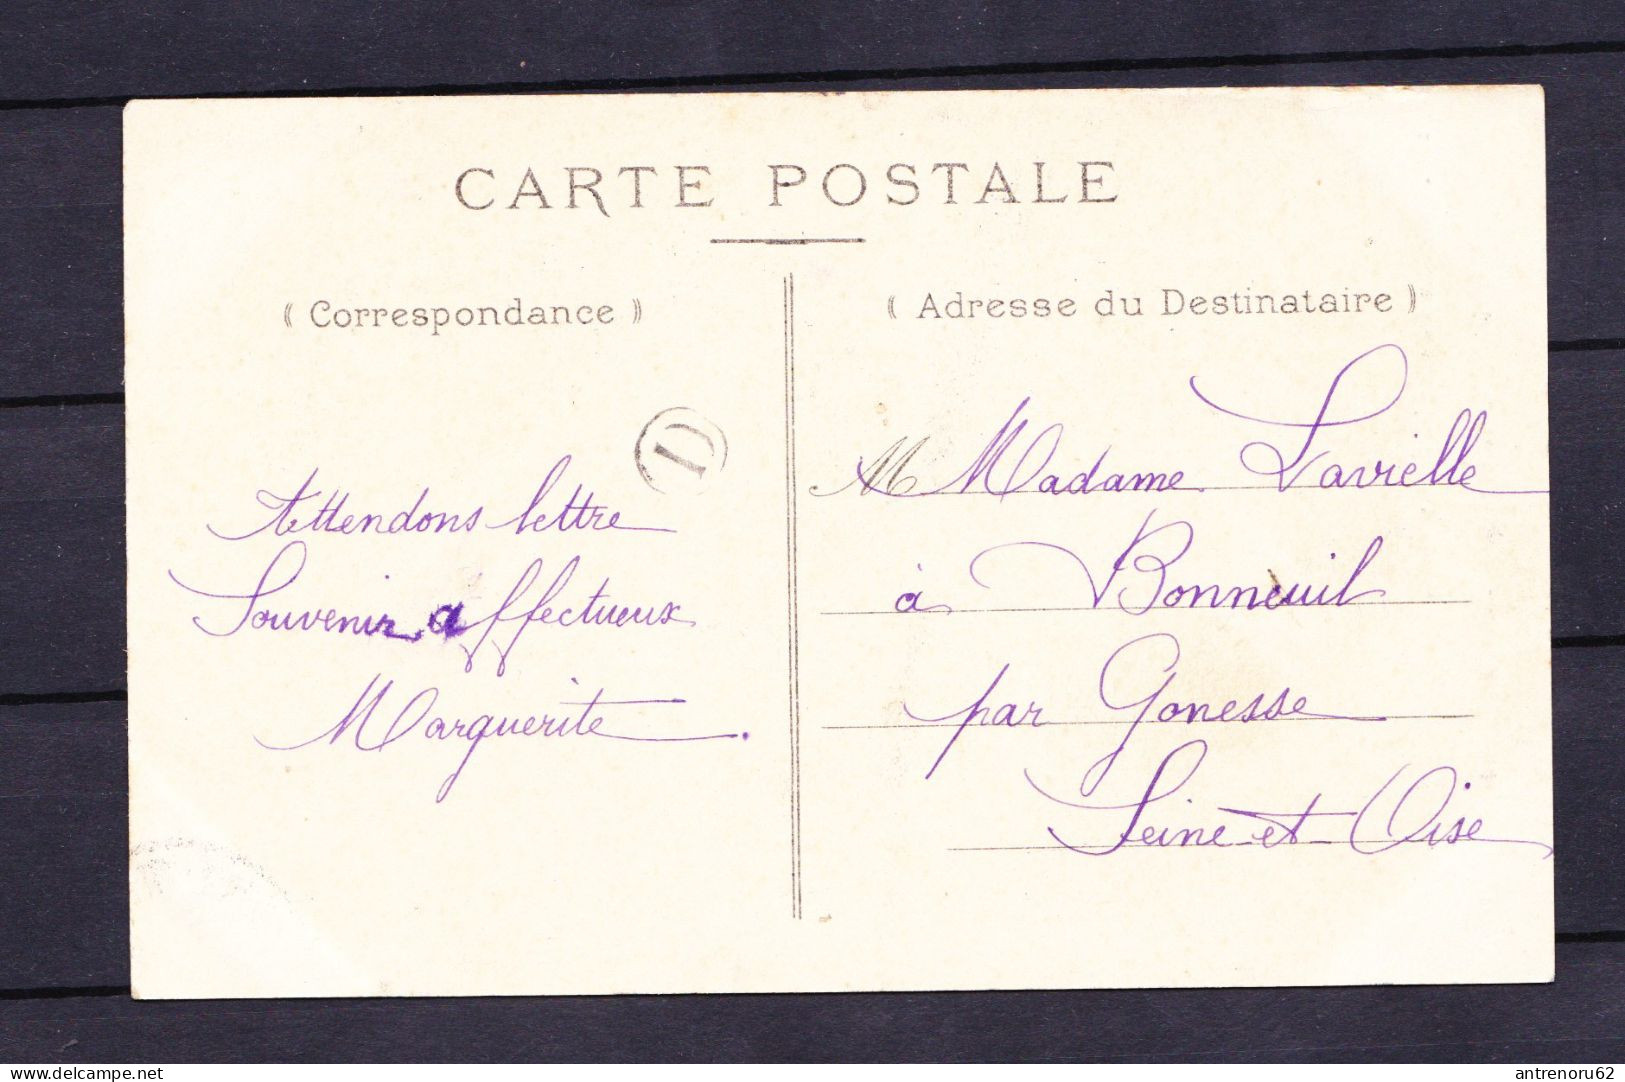 CARTE POSTALE
( Correspondance )
( Adresse du Destinataire )
D
Attendons lettre
Souvenir affectueux
Marguerite.
M Madame Lavielle
à Bonneuil
par Gonesse
Seine-et-Oise
www.delcampe.net
antrenoru62